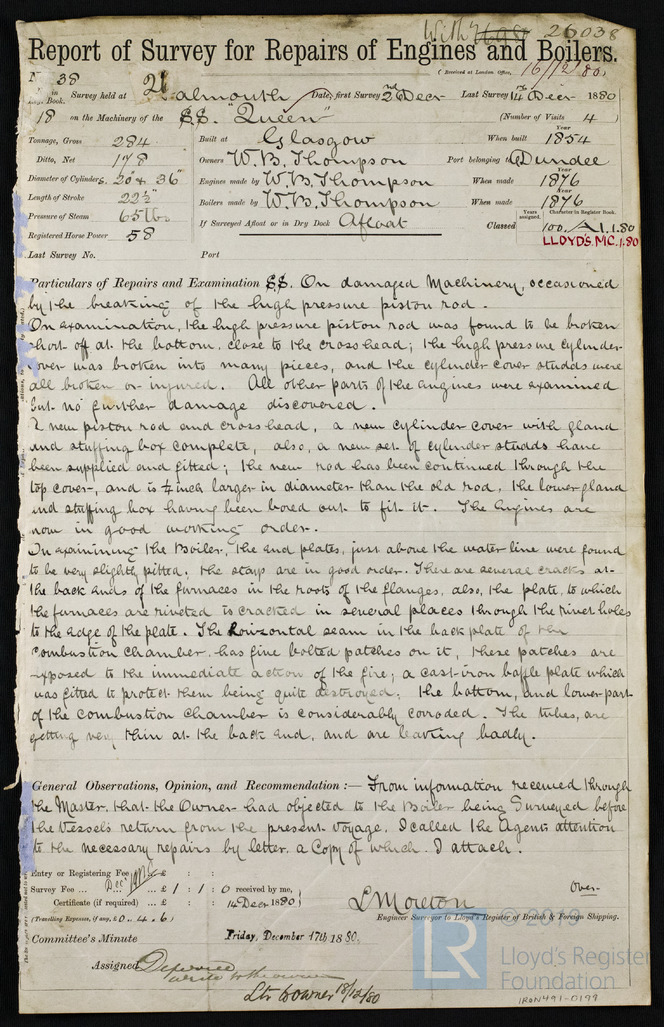 With 26038
Report of Survey for Repairs of Engines and Boilers.
(Received at London Office, 16/12/80)
No. 38
in Reg. Book. Survey held at Falmouth Date, first Survey 2nd Decr Last Survey 14th Decr 1880
18 on the Machinery of the S.S. "Queen" (Number of Visits 4)
Tonnage, Gross 284 Built at Glasgow When built Year 1854
Ditto, Net 178 Owners W. B. Thompson Port belonging to Dundee
Diameter of Cylinders. 20 & 36" Engines made by W. B. Thompson When made Year 1876
Length of Stroke 22½" Boilers made by W. B. Thompson When made Year 1876
Pressure of Steam 65 lbs If Surveyed Afloat or in Dry Dock Afloat Classed Years assigned. Character in Register Book. 100. A 1.1.80
Registered Horse Power 58 LLOYD'S. M.C. 1.80
Last Survey No. Port
Particulars of Repairs and Examination S.S. On damaged Machinery, occasioned
by the breaking of the high pressure piston rod.
On examination, the high pressure piston rod was found to be broken
short off at the bottom, close to the crosshead; the high pressure cylinder
cover was broken into many pieces, and the cylinder cover studs were
all broken or injured. All other parts of the engines were examined
but no further damage discovered.
A new piston rod and crosshead, a new cylinder cover with gland
and stuffing box complete, also, a new set of cylinder studs have
been supplied and fitted; the new rod has been continued through the
top cover, and is ¼ inch larger in diameter than the old rod, the lower gland
and stuffing box having been bored out to fit it. The Engines are
now in good working order.
On examining the Boiler, the end plates, just above the water line were found
to be very slightly pitted, the stays are in good order. There are several cracks at
the back ends of the furnaces in the roots of the flanges, also, the plate, to which
the furnaces are riveted is cracked in several places through the rivet holes
to the edge of the plate. The horizontal seam in the back plate of the
combustion chamber, has five bolted patches on it, these patches are
exposed to the immediate action of the fire; a cast-iron baffle plate which
was fitted to protect them being quite destroyed; the bottom, and lower part
of the combustion chamber is considerably corroded. The tubes, are
getting very thin at the back end, and are leaking badly.
General Observations, Opinion, and Recommendation :— From information received through
the Master, that the Owner had objected to the Boiler being Surveyed before
the Vessel's return from the present voyage, I called the Agents attention
to the necessary repairs by letter, a Copy of which I attach.
Over-
Entry or Registering Fee £ : :
Survey Fee ... £ 1 : 1 : 0 received by me,
Certificate (if required) ... £ : : 14 Decr 1880
(Travelling Expenses, if any, £0.. 4.. 6)
L Moreton
Engineer Surveyor to Lloyd's Register of British & Foreign Shipping.
Committee's Minute Friday, December 17th 1880.
Assigned Deferred
write to the owner
Ltr to owner 18/12/80
LR
© 2019
Lloyd's Register
Foundation
IRON491-0199